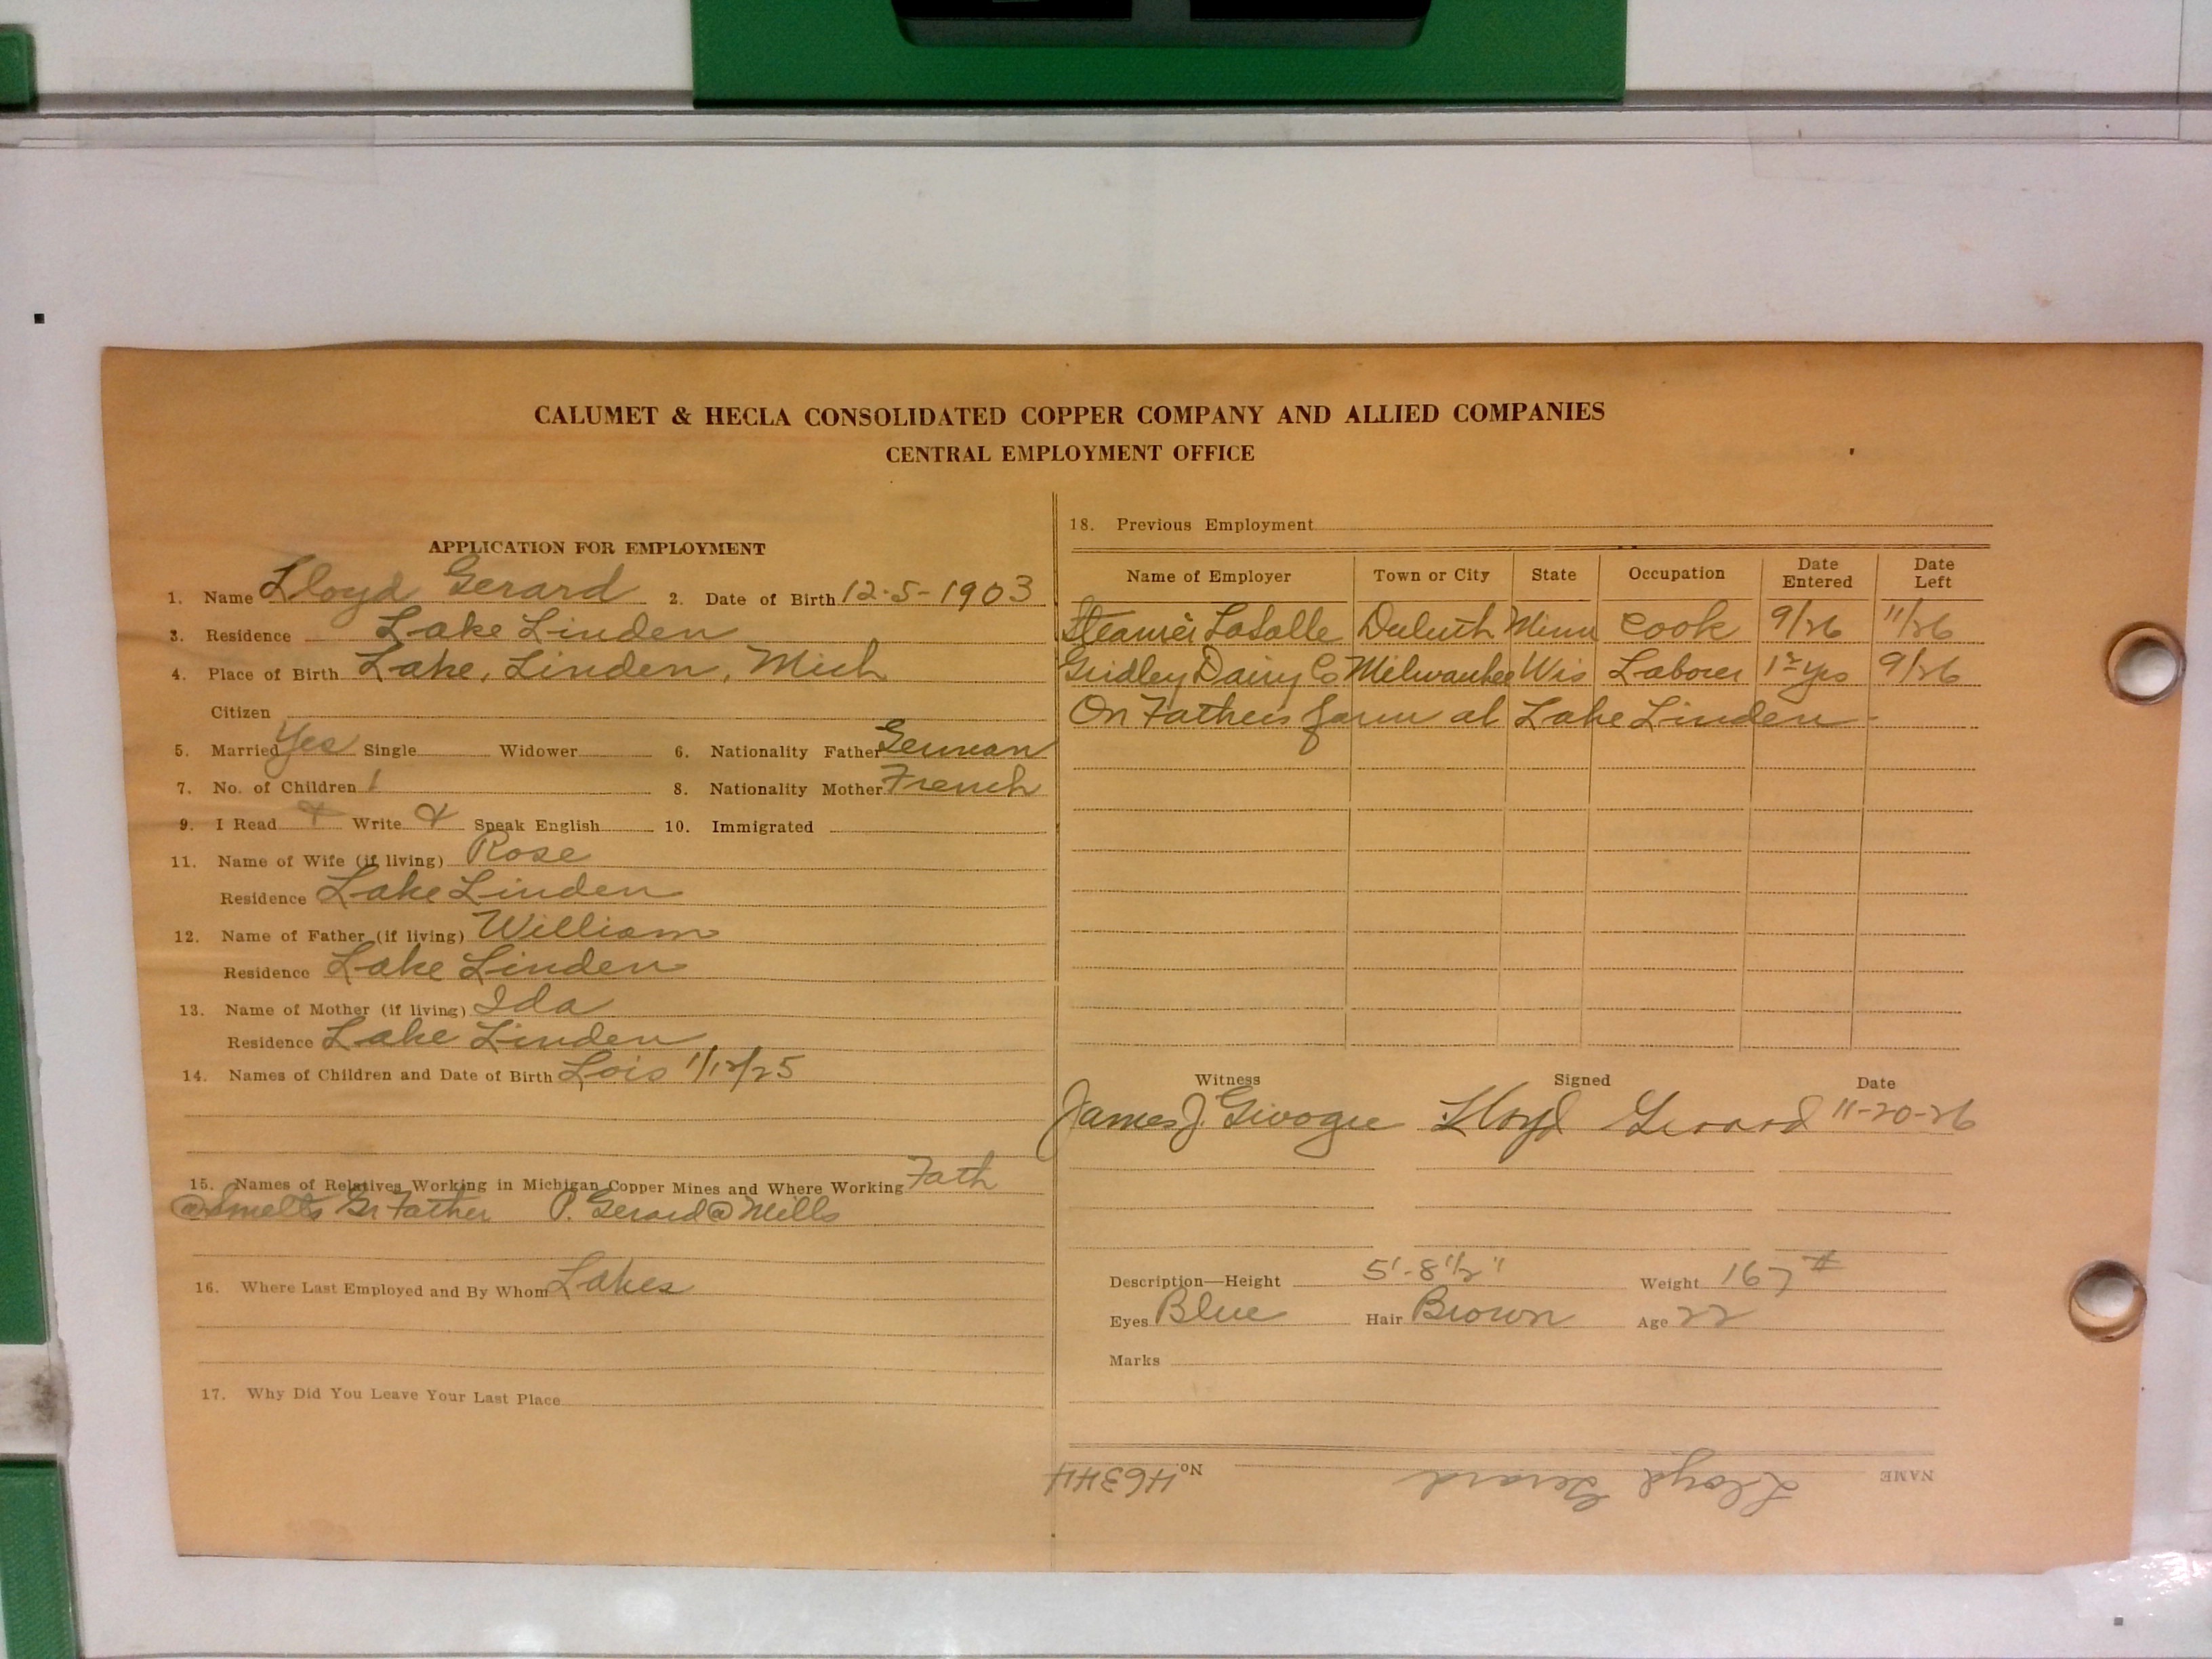 CALUMET & HECLA CONSOLIDATED COPPER COMPANY AND ALLIED COMPANIES
CENTRAL EMPLOYMENT OFFICE
APPLICATION FOR EMPLOYMENT
1. Name Lloyd Gerard 2. Date of Birth 12-5-1903
3. Residence Lake Linden
4. Place of Birth Lake, Linden, Mich
Citizen
5. Married Yes Single Widower 6. Nationality Father German
7. No. of Children 1 8. Nationality Mother French
9. I Read Write Speak English 10. Immigrated
11. Name of Wife (if living) Rose
Residence Lake Linden
12. Name of Father (if living) William
Residence Lake Linden
13. Name of Mother (if living) Ida
Residence Lake Linden
14. Names of Children and Date of Birth Lois 1/12/25
15. Names of Relatives Working in Michigan Copper Mines and Where Working Fath
@ Smelts Gr Father P. Gerard @ Mills
16. Where Last Employed and By Whom Lakes
17. Why Did You Leave Your Last Place
18. Previous Employment
Name of Employer Town or City State Occupation Date Entered Date Left
Steamer LaSalle Duluth Minn Cook 9/26 11/26
Gridley Dairy Co Milwaukee Wis Laborer yrs 9/26
On Fathers farm at Lake Linden -
Witness Signed Date
James J. Lloyd Gerard 11-20-26
Description—Height 5'-8 1/2" Weight 167 #
Eyes Blue Hair Brown Age 22
Marks
NAME Lloyd Gerard No 46344